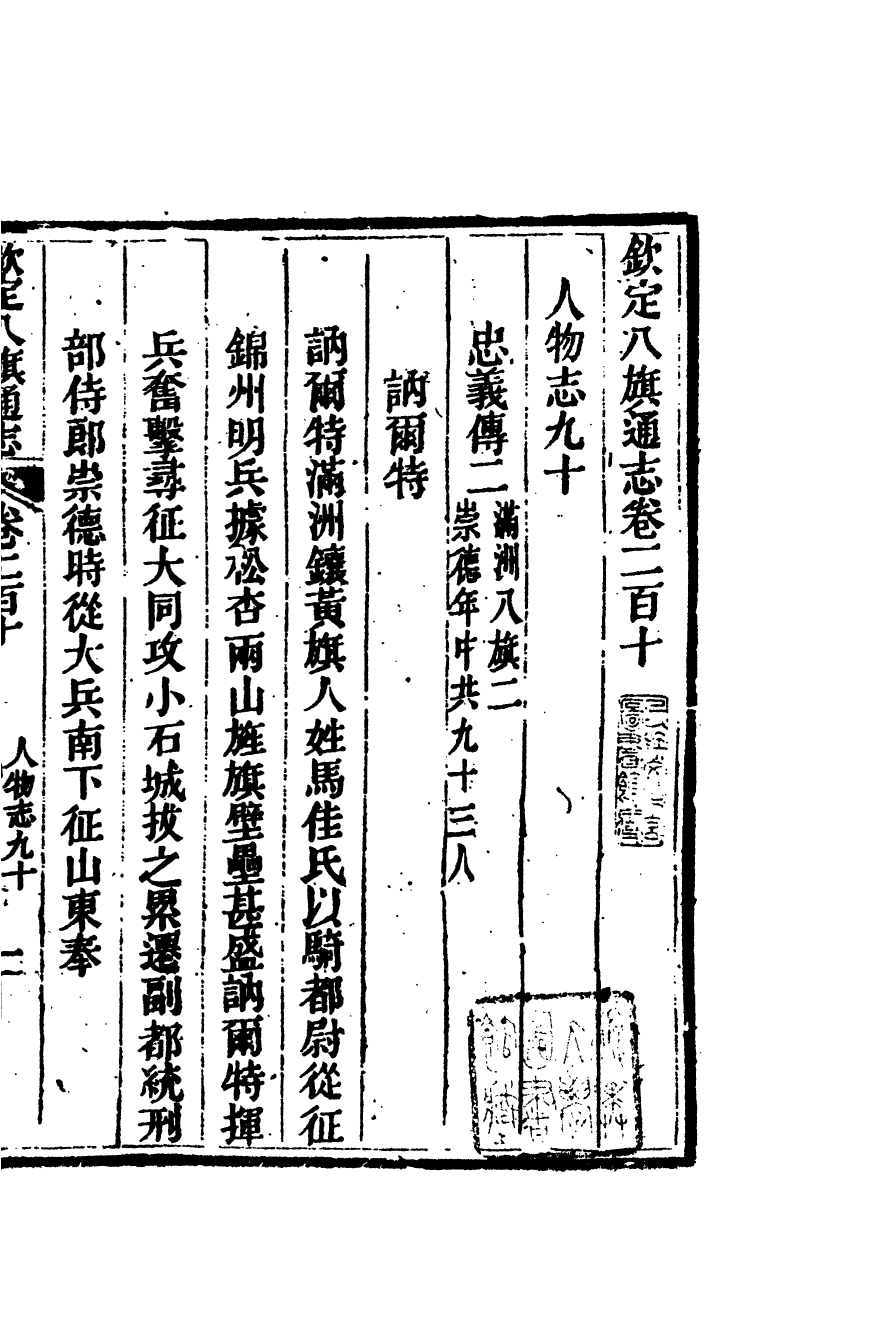 欽定八旗通志卷二百十
人物志九十
忠義傳二
滿洲八旗二
崇德年中共九十三人
訥爾特
訥爾特滿洲鑲黃旗人姓馬佳氏以騎都尉從征
錦州明兵據松杏兩山旌旗壁壘甚盛訥爾特揮
兵奮擊尋征大同攻小石城拔之累遷副都統刑
部侍郎崇德時從大兵南下征山東奉
欽定八旗通志
卷二百十
人物志九十
一